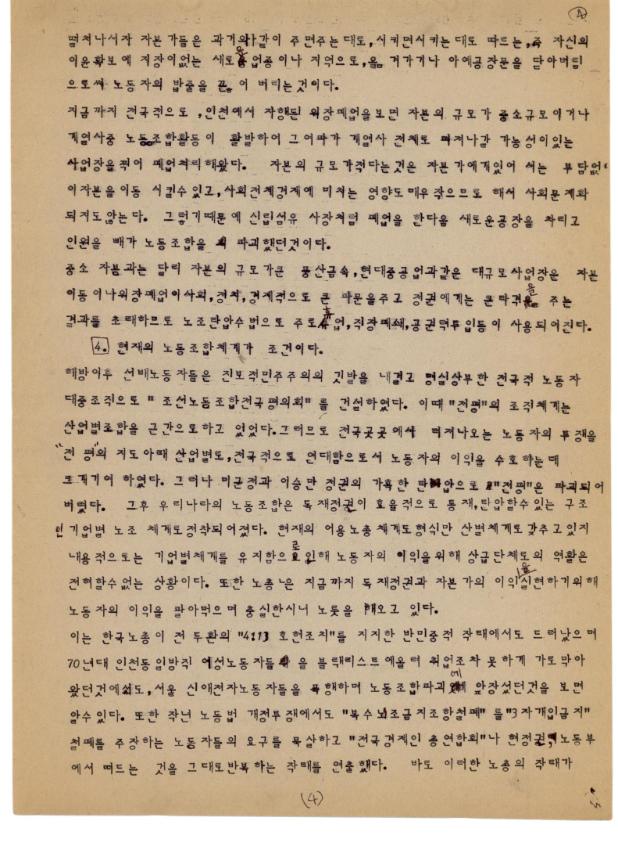 ④
펼쳐나서자 자본가들은 과거와같이 주면주는대로,서키면서키는대로 따르는,즉 자신의
이윤확보에 지장이없는 새로운업종이나 지역으로,옮겨가거나 아예공장문을 닫아버림
으로써 노동자의 밥줄을 끊어 버리는것이다.
지금까지 전국적으로,인천에서 자행된 위장폐업을보면 자본의 규모가 중소규모이거나
계열사중 노동조합활동이 활발하여 그여파가 계열사 전체로 퍼져나갈 가능성이있는
사업장을찍어 폐업처리해왔다. 자본의 규모가적다는것은 자본가에게있어 서는 부담없
이자본을이동 시킬수있고,사회전체경제에 미치는 영향도매우작으므로 해서 사회문제화
되지도않는다. 그렇기때문에 신립섬유 사장처럼 폐업을 한다음 새로운공장을 차리고
인원을 빼가 노동조합을 파괴했던것이다.
중소 자본과는 달리 자본의 규모가큰 풍산금속,현대중공업과같은 대규모사업장은 자본
이동이나위장폐업이사회,정치,경제적으로 큰 파문을주고 정권에게는 큰타격을 주는
결과를 초래하므로 노조탄압수법으로 주로휴업,직장폐쇄,공권력투입등이 사용되어진다.
4. 현재의 노동조합체계가 조건이다.
해방이후 선배노동자들은 진보적민주주의의 깃발을 내걸고 명실상부한 전국적 노동자
대중조직으로 "조선노동조합전국평의회" 를 건설하였다. 이때 "전평"의 조직체계는
산업별조합을 근간으로하고 있었다.그러므로 전국곳곳에서 터져나오는 노동자의 투쟁을
"전평"의 지도아래 산업별로,전국적으로 연대함으로서 노동자의 이익을 수호하는데
크게기여 하였다. 그러나 미군정과 이승만 정권의 가혹한 탄압으로 "전평"은 파괴되어
버렸다. 그후 우리나라의 노동조합은 독재정권이 효율적으로 통제,탄압할수있는 구조
인기업별 노조 체계로정착되어졌다. 현재의 어용노총체계도형식만 산별체계로갖추고있지
내용적으로는 기업별체계를 유지함으로 인해 노동자의 이익을위해 상급단체로의 역활은
전혀할수없는 상황이다. 또한 노총은 지금까지 독재정권과 자본가의 이익을실현하기위해
노동자의 이익을 팔아먹으며 충실한시녀 노릇을 해오고 있다.
이는 한국노총이 전두환의 "4.13 호헌조치"를 지지한 반민중적 작태에서도 드러났으며
70년대 인천동일방직 여성노동자들을 블랙리스트에올려 취업조차 못하게 가로막아
왔던것에서도,서울 신애전자노동자들을 폭행하며 노동조합파괴에 앞장섰던것을 보면
알수있다. 또한 작년 노동법 개정투쟁에서도 "복수노조금지조항철폐" 를"3자개입금지"
철폐를 주장하는 노동자들의 요구를 묵살하고 "전국경제인 총연합회"나 현정권,노동부
에서 떠드는 것을 그대로반복하는 작태를 연출했다. 바로 이러한 노총의 작태가
(4)